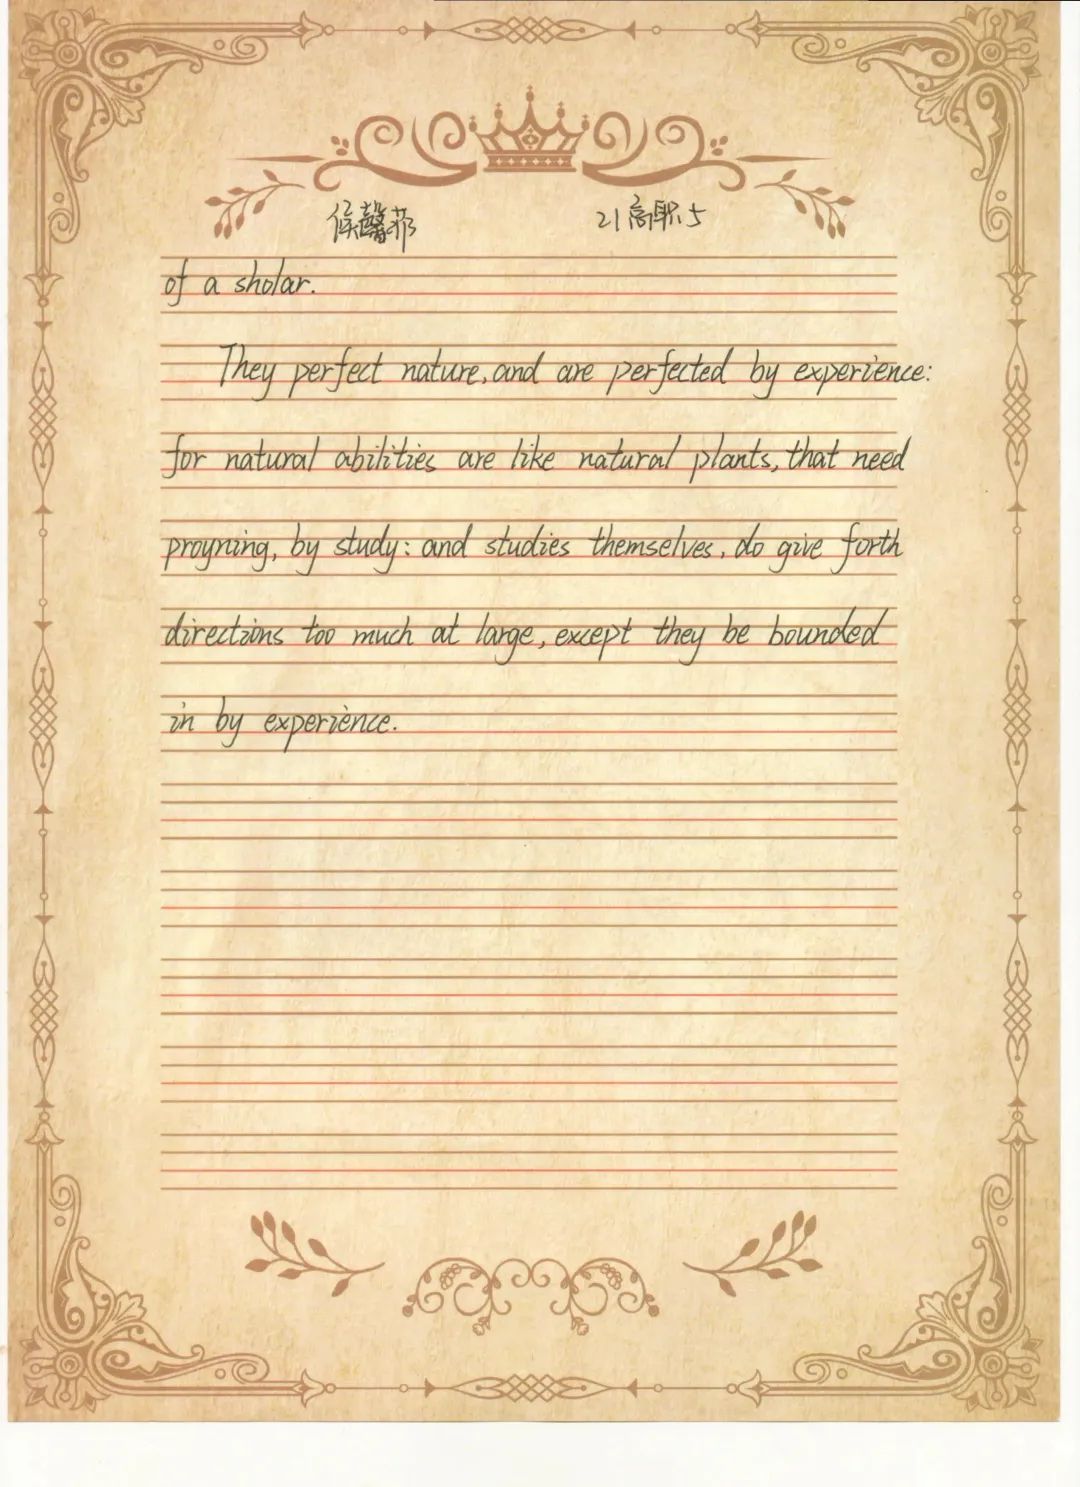 侯馨菲 21高职5
of a sholar.
They perfect nature, and are perfected by experience:
for natural abilities are like natural plants, that need
proyning, by study: and studies themselves, do give forth
directions too much at large, except they be bounded
in by experience.